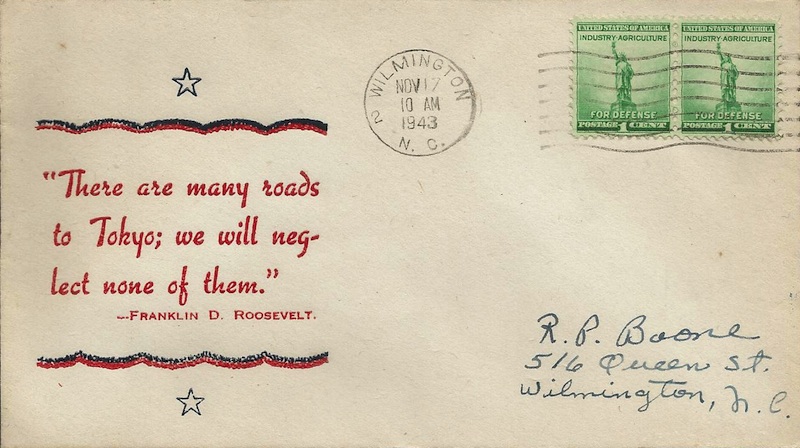 "There are many roads
to Tokyo; we will neg-
lect none of them."
—FRANKLIN D. ROOSEVELT.
2 WILMINGTON
NOV 17
10 AM
1943
N. C.
UNITED STATES OF AMERICA
INDUSTRY·AGRICULTURE
FOR DEFENSE
POSTAGE 1 CENT
UNITED STATES OF AMERICA
INDUSTRY·AGRICULTURE
FOR DEFENSE
POSTAGE 1 CENT
R. P. Boone
516 Queen St.
Wilmington, N. C.